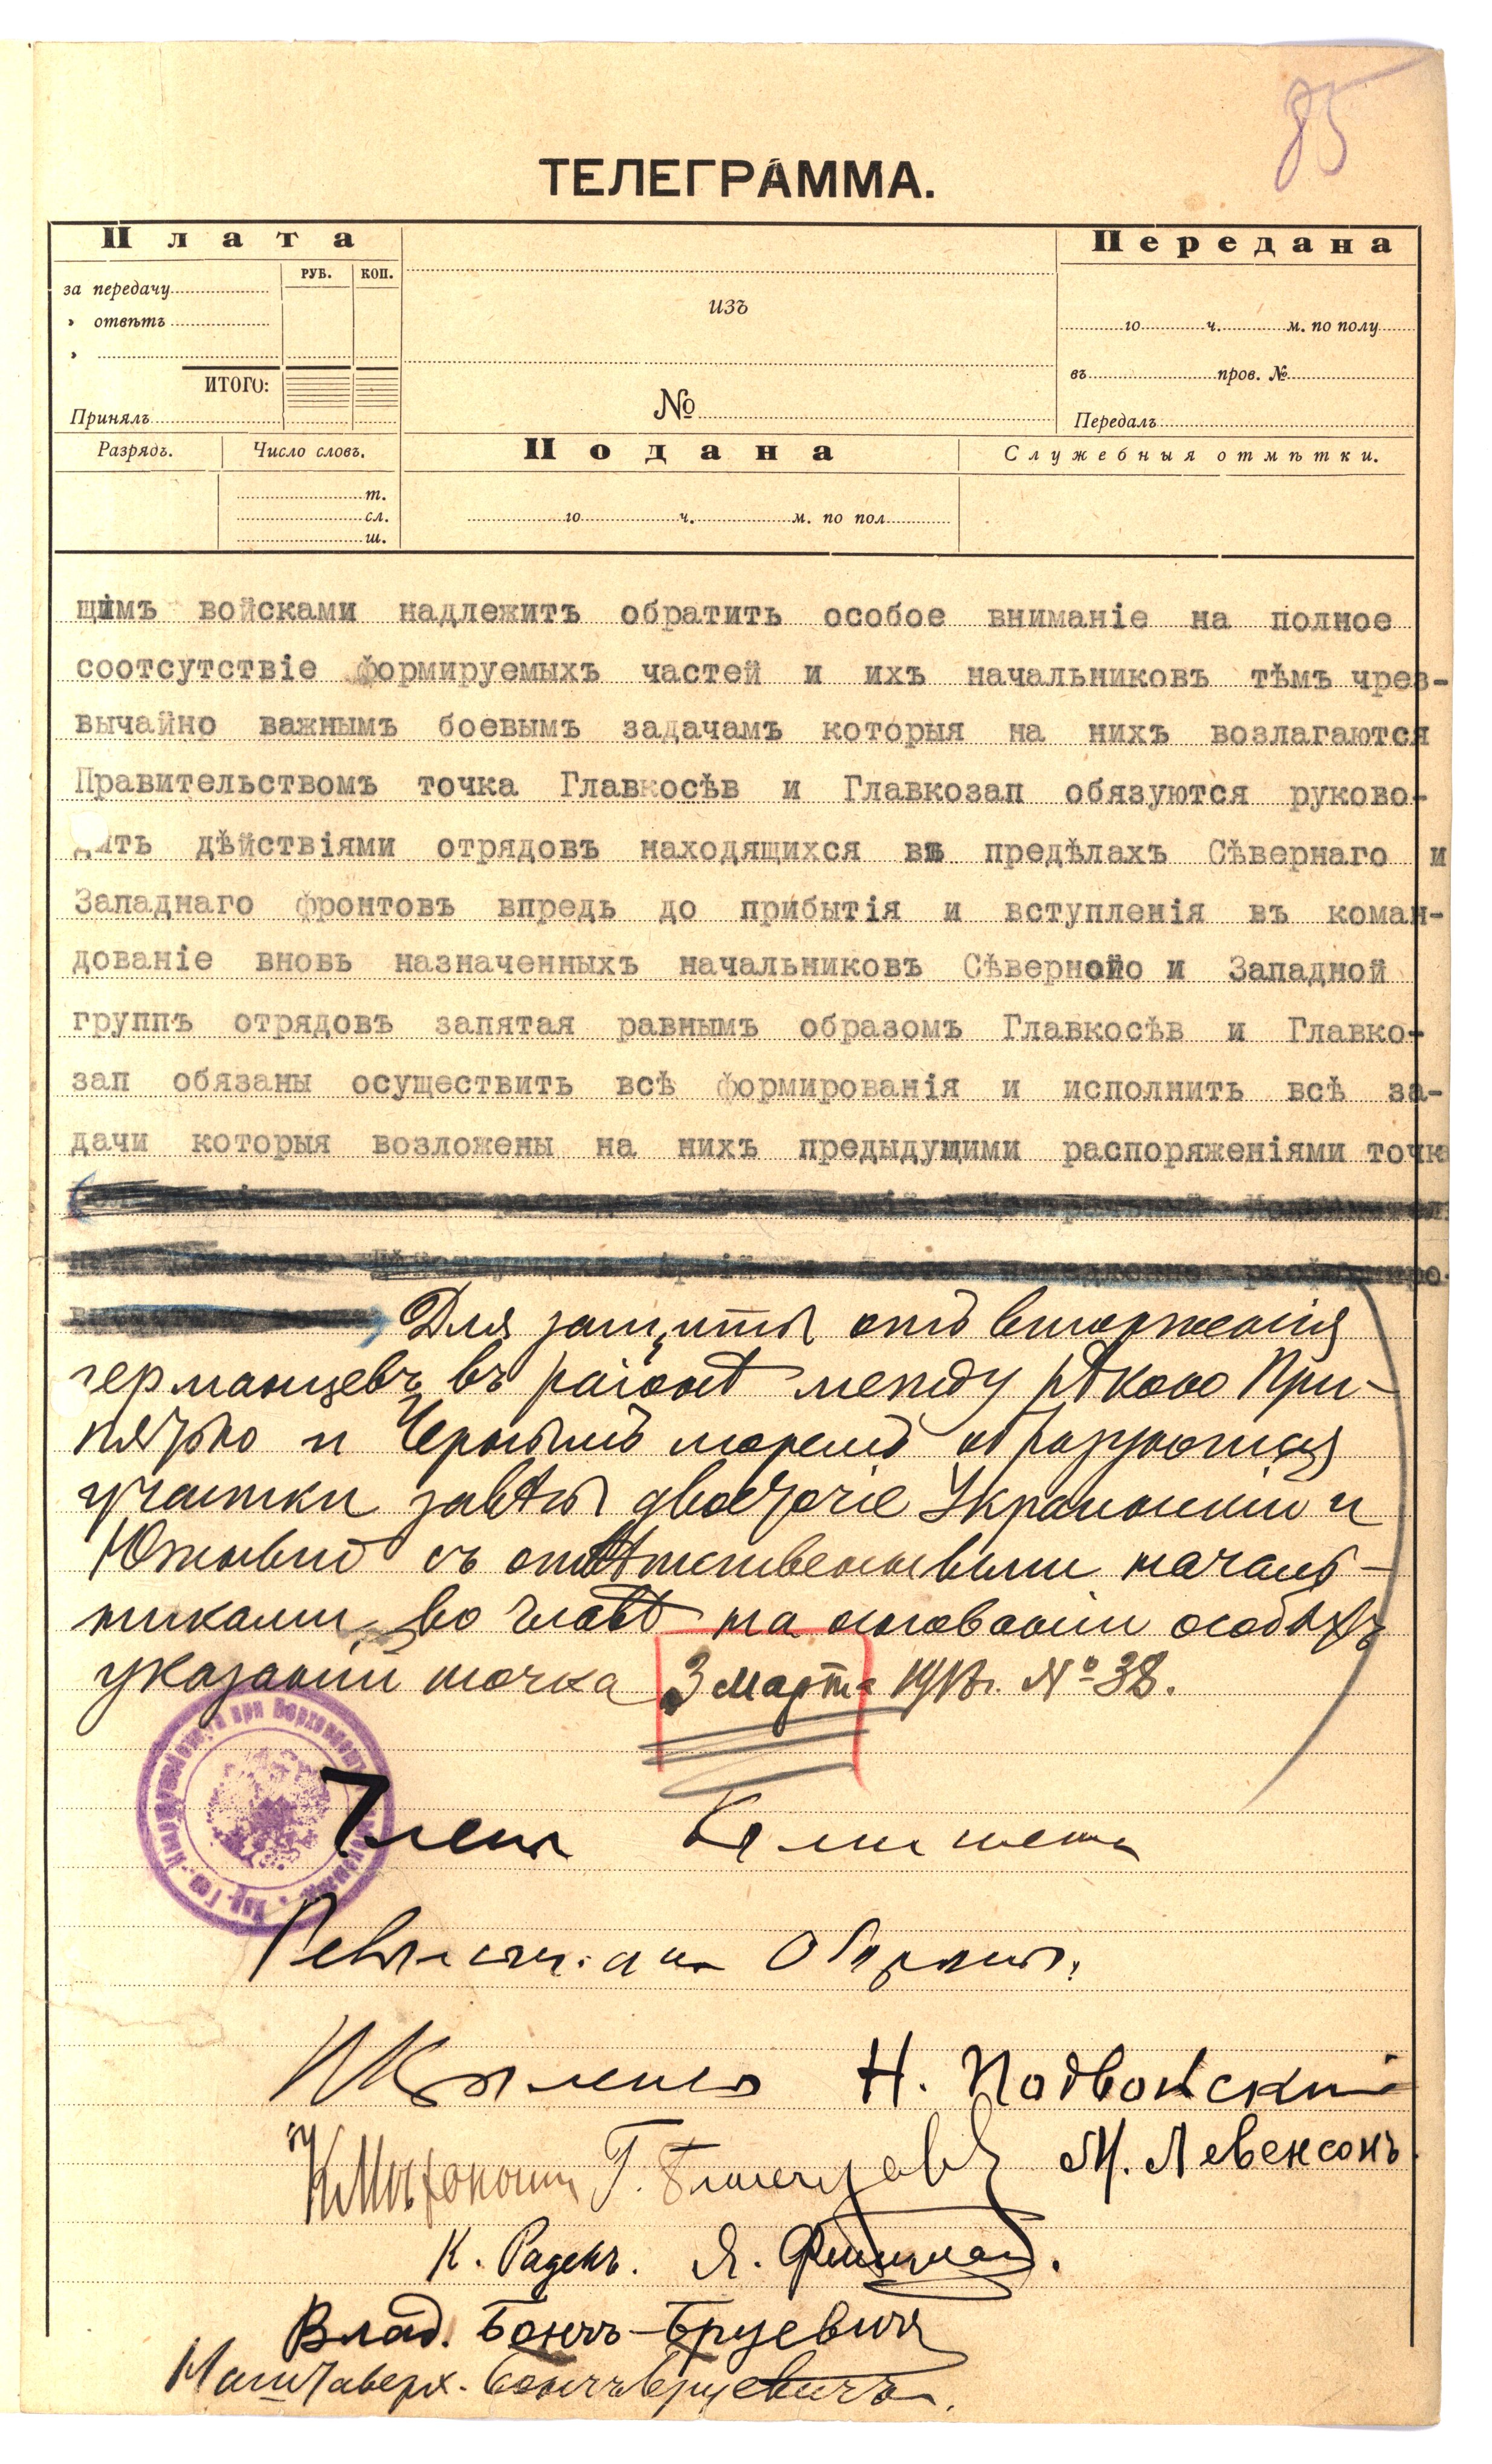 85
ТЕЛЕГРАММА.
Плата
РУБ. КОП.
за передачу
» отвѣтъ
»
ИТОГО:
Принялъ
изъ
№
Передана
го ч. м. по полу
въ пров. №
Передалъ
Разрядъ. Число словъ.
т.
сл.
ш.
Подана
го ч. м. по пол
Служебныя отмѣтки.
щимъ войсками надлежитъ обратить особое вниманіе на полное
соотсутствіе формируемыхъ частей и ихъ начальниковъ тѣмъ чрез-
вычайно важнымъ боевымъ задачамъ которыя на нихъ возлагаются
Правительствомъ точка Главкосѣв и Главкозап обязуются руково-
дить дѣйствіями отрядовъ находящихся въ предѣлахъ Сѣвернаго и
Западнаго фронтовъ впредь до прибытія и вступленія въ коман-
дованіе вновь назначенныхъ начальниковъ Сѣверной и Западной
группъ отрядовъ запятая равнымъ образомъ Главкосѣв и Главко-
зап обязаны осуществить всѣ формированія и исполнить всѣ за-
дачи которыя возложены на нихъ предыдущими распоряженіями точка
Для защиты отъ вторженія
германцевъ въ районѣ между рѣкою При-
пятью и Чернымъ моремъ образуются
участки завѣсы двоеточіе Украинскій и
Южный съ отвѣтственными началь-
никами во главѣ на основаніи особыхъ
указаній точка 3 марта 1918г. №38.
Члены Комитета
Революц. Обороны.
Н Крыленко Н. Подвойскій
К Мѣхоношин Г. Благонравовъ М. Левенсонъ.
К. Радекъ. Я. Фишман.
Влад. Бончъ-Бруевич
Наштаверх. Бончъ-Бруевичъ.